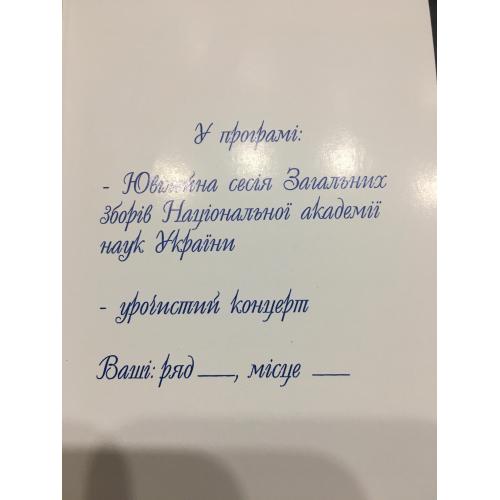 У програмі:
- Ювілейна сесія Загальних
зборів Національної академії
наук України
- урочистий концерт
Ваші: ряд ___, місце ___